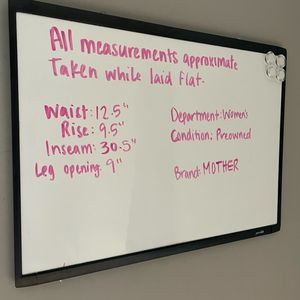 All measurements approximate
Taken while laid flat-
Waist: 12.5"
Rise: 9.5"
Inseam: 30.5"
Leg opening: 9"
Department: Women's
Condition: Preowned
Brand: MOTHER